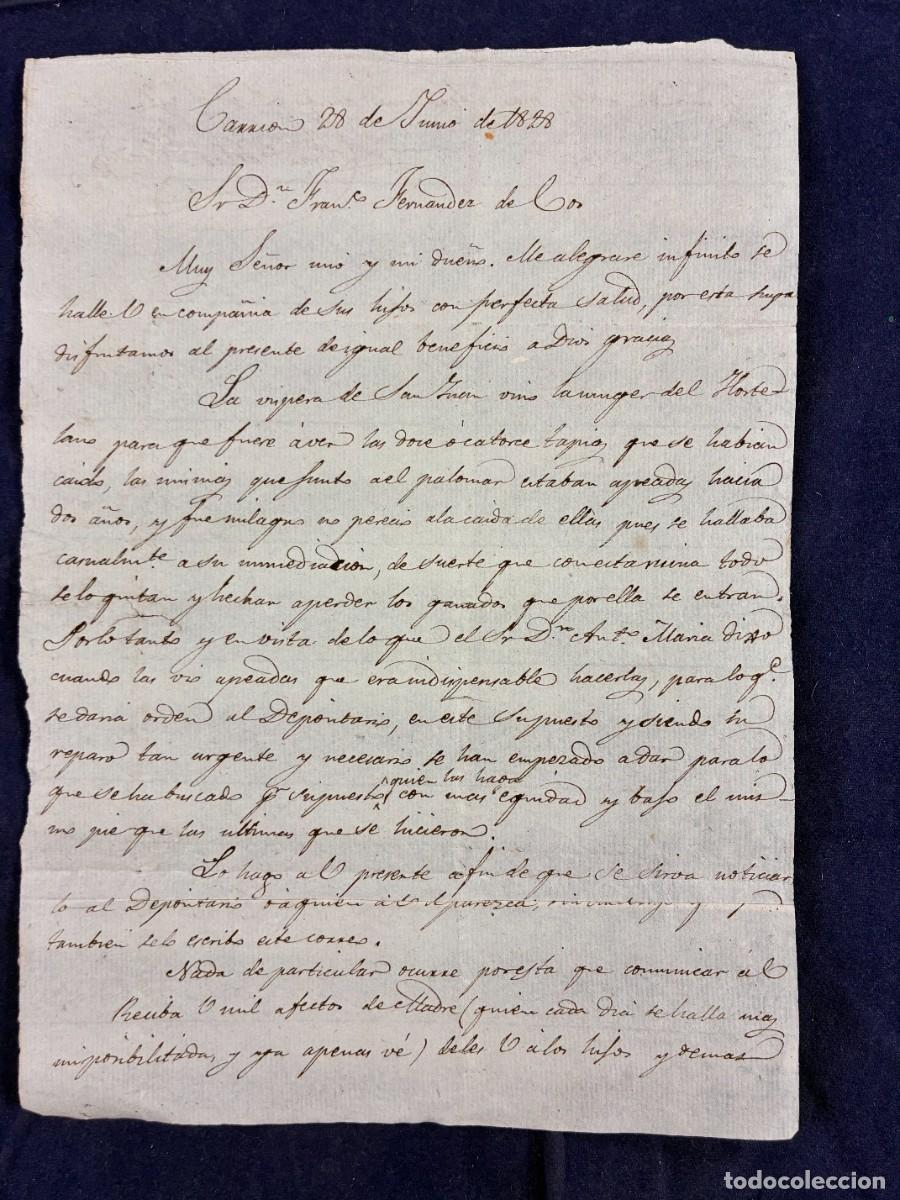 Carrion 28 de Junio de 1828
Sr Dn. Franco. Fernandez de Cos
Muy Señor mio y mi dueño. Me alegrare infinito se
halle V en compañia de sus hijos con perfecta salud, por esta suya
disfrutamos al presente de igual beneficio a Dios gracias
La vispera de San Juan vino la muger del Horte-
lano para que fuere á ver las doce ó catorce tapias que se habian
caido, las mismas que junto a el palomar estaban apeadas hacia
dos años, y fue milagro no perecio a la caida de ellas pues se hallaba
casualmte. a su immediacion, de suerte que con esta ruina todo
se lo quitan y hechan a perder los ganados que por ella se entran.
Por lo tanto y en vista de lo que el Sr Dn. Anto. Maria dixo
cuando las vio apeadas que era indispensable hacerlas, para lo qe.
se daria orden al Depositario, en este supuesto y siendo su
reparo tan urgente y necesario se han empezado a dar para lo
que se ha buscado pr. supuesto quien las haga con mas equidad y bajo el mis-
mo pie que las ultimas que se hicieron.
Lo hago a V presente a fin de que se sirva noticiar
lo al Depositario ó á quien á V parezca,
tambien se lo escribo este correo.
Nada de particular ocurre por esta que comunicar á V
Reciba V mil afectos de Madre (quien cada dia se halla mas
imposibilitada, y ya apenas vé) deles V á los hijos y demas
todocoleccion